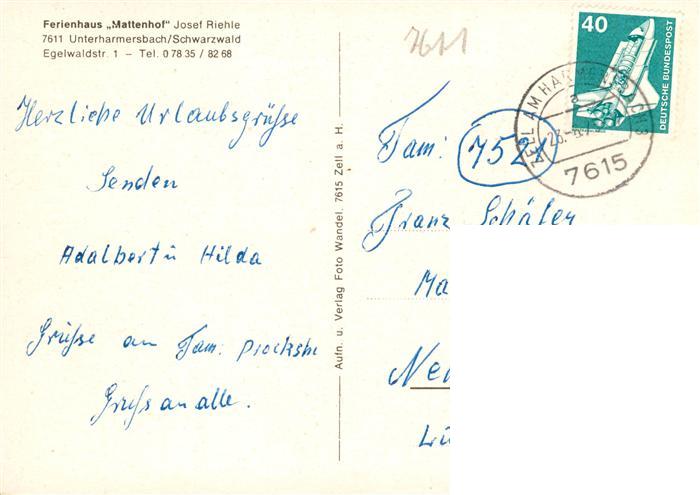 Ferienhaus „Mattenhof" Josef Riehle
7611 Unterharmersbach/Schwarzwald
Egelwaldstr. 1 – Tel. 0 78 35 / 82 68
7611
40
DEUTSCHE BUNDESPOST
ZELL AM HARMERSBACH
a
23.
7615
Herzliche Urlaubsgrüsse
Senden
Adalbert u Hilda
Grüsse an Fam.
Gruss an alle.
Aufn. u. Verlag Foto Wandel, 7615 Zell a. H.
Fam: 7521
Franz Schäfer
Ma
Ne